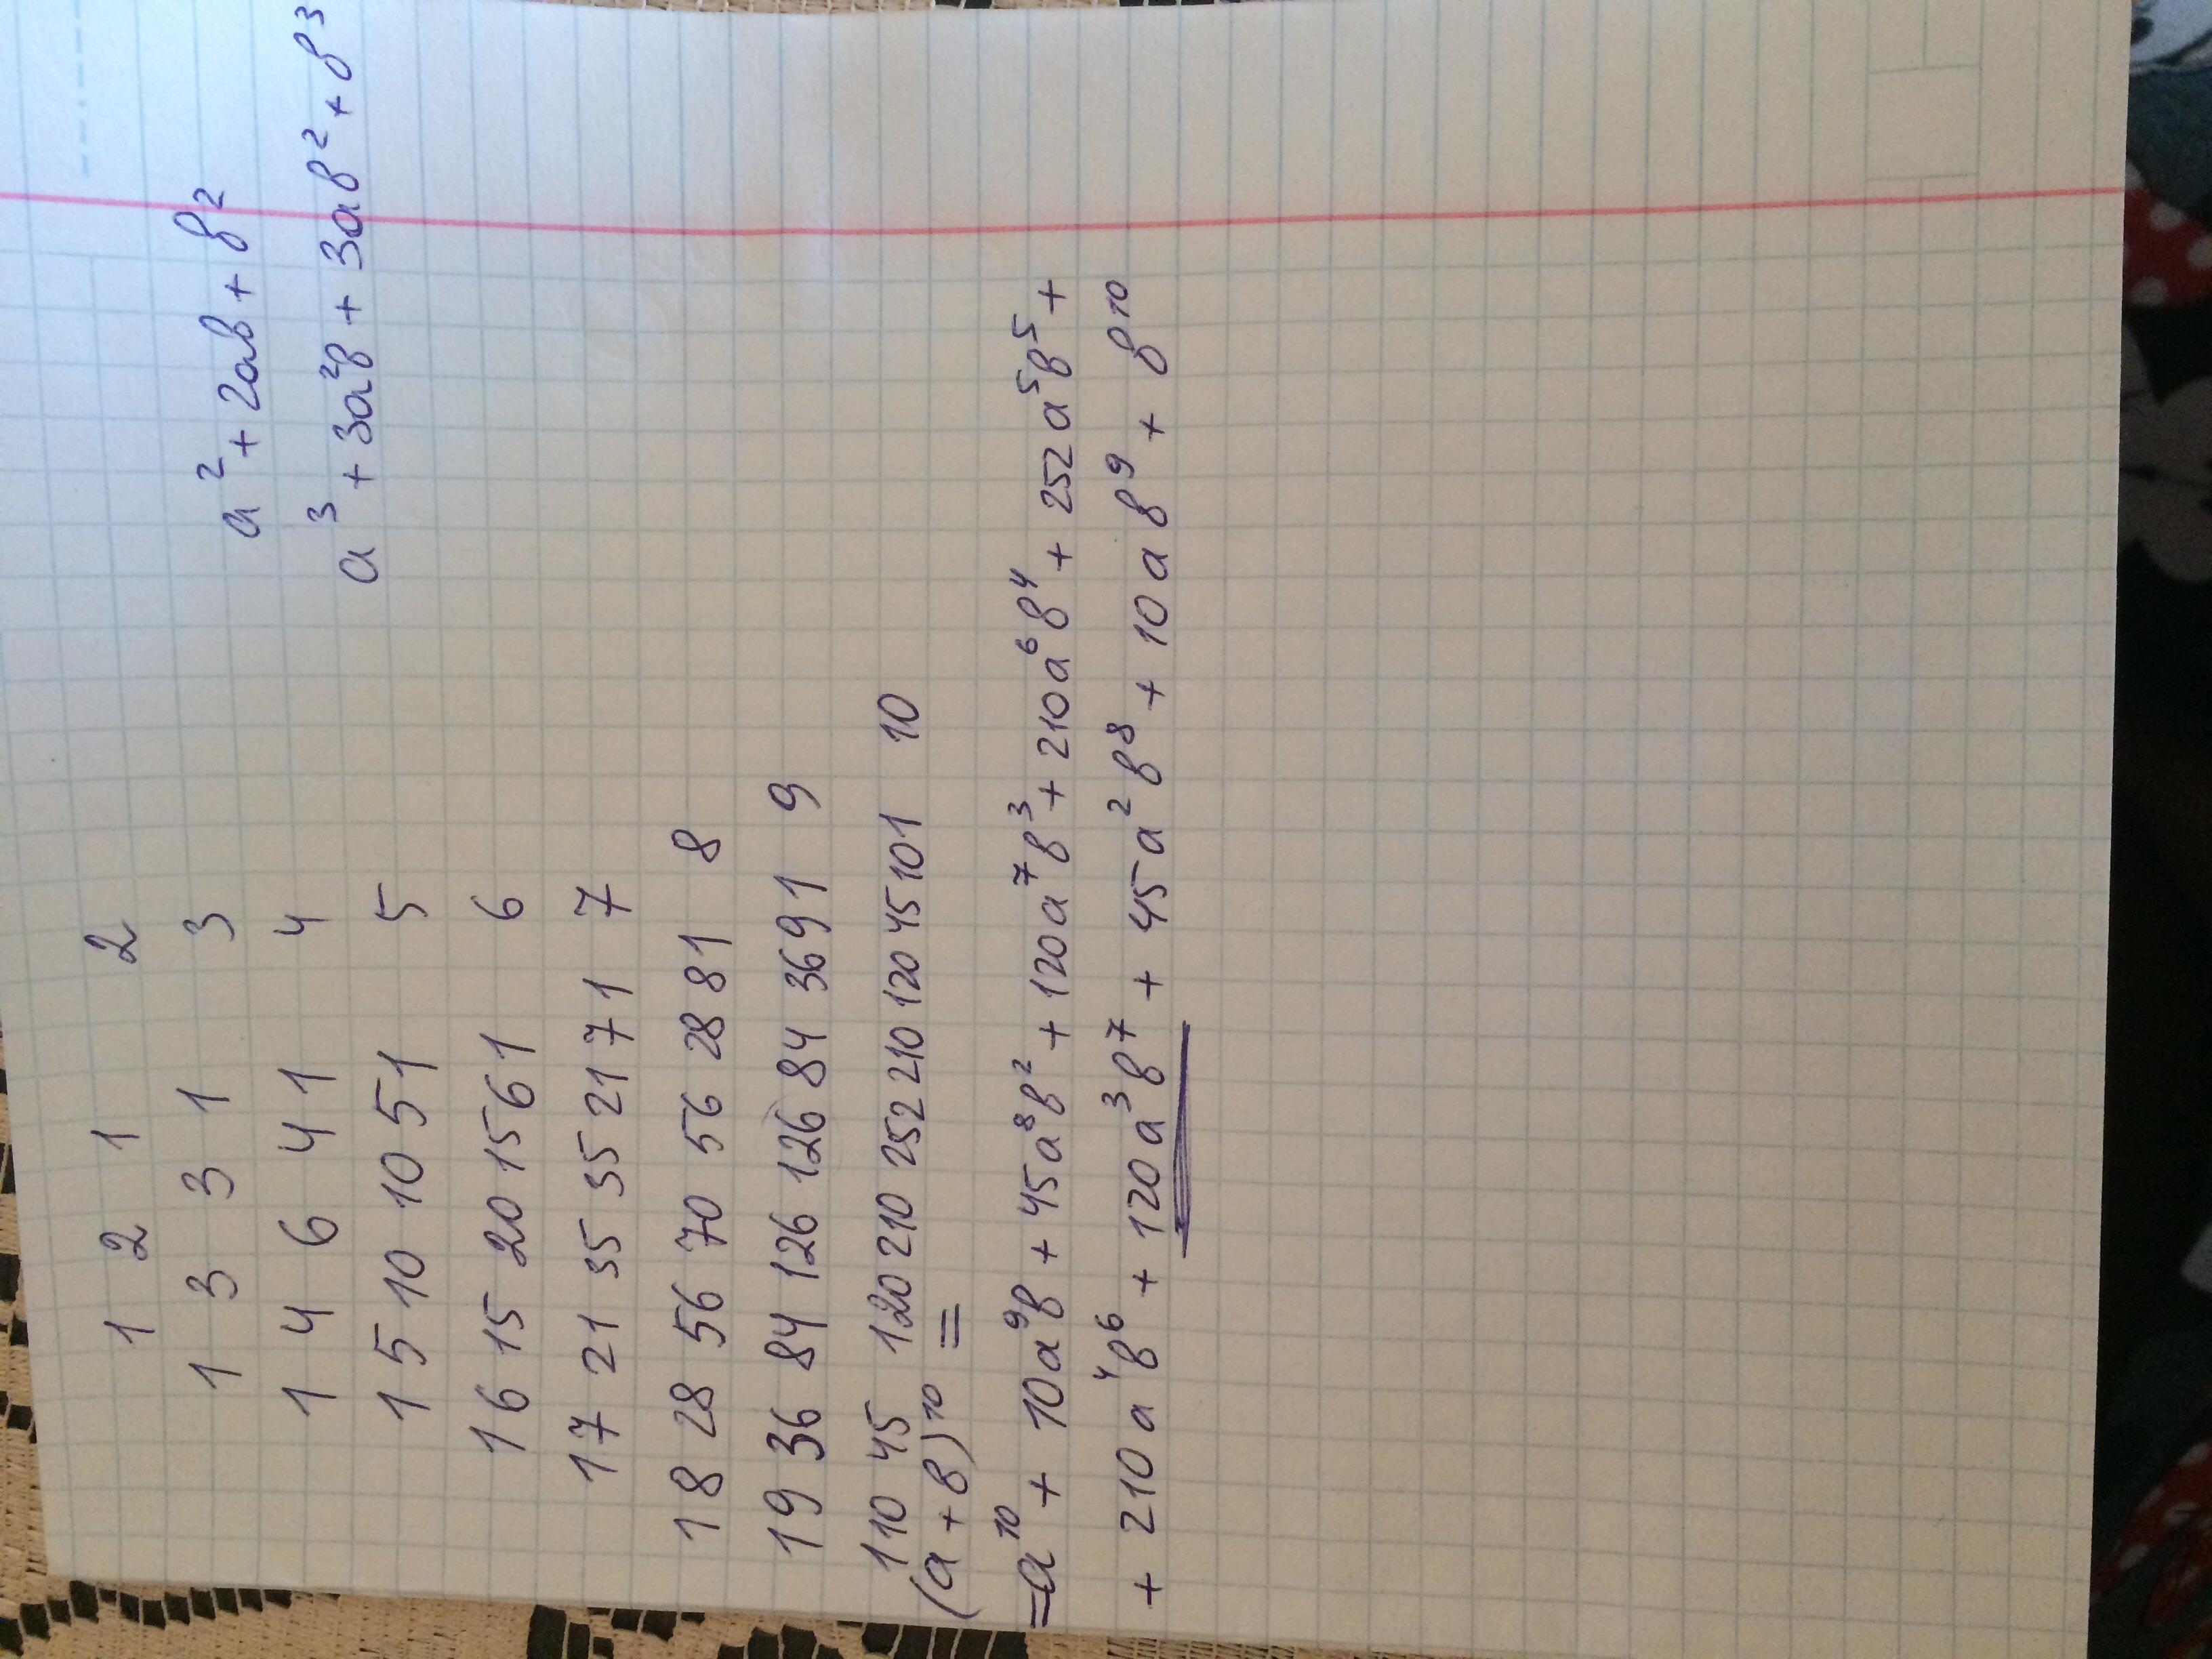 1 2 1 2
1 3 3 1 3
1 4 6 4 1 4
1 5 10 10 5 1 5
1 6 15 20 15 6 1 6
1 7 21 35 35 21 7 1 7
1 8 28 56 70 56 28 8 1 8
1 9 36 84 126 126 84 36 9 1 9
1 10 45 120 210 252 210 120 45 10 1 10
a² + 2ав + в²
a³ + 3a²в + 3aв² + в³
(a + в)¹⁰ =
= a¹⁰ + 10a⁹в + 45a⁸в² + 120a⁷в³ + 210a⁶в⁴ + 252a⁵в⁵ +
+ 210a⁴в⁶ + 120a³в⁷ + 45a²в⁸ + 10aв⁹ + в¹⁰